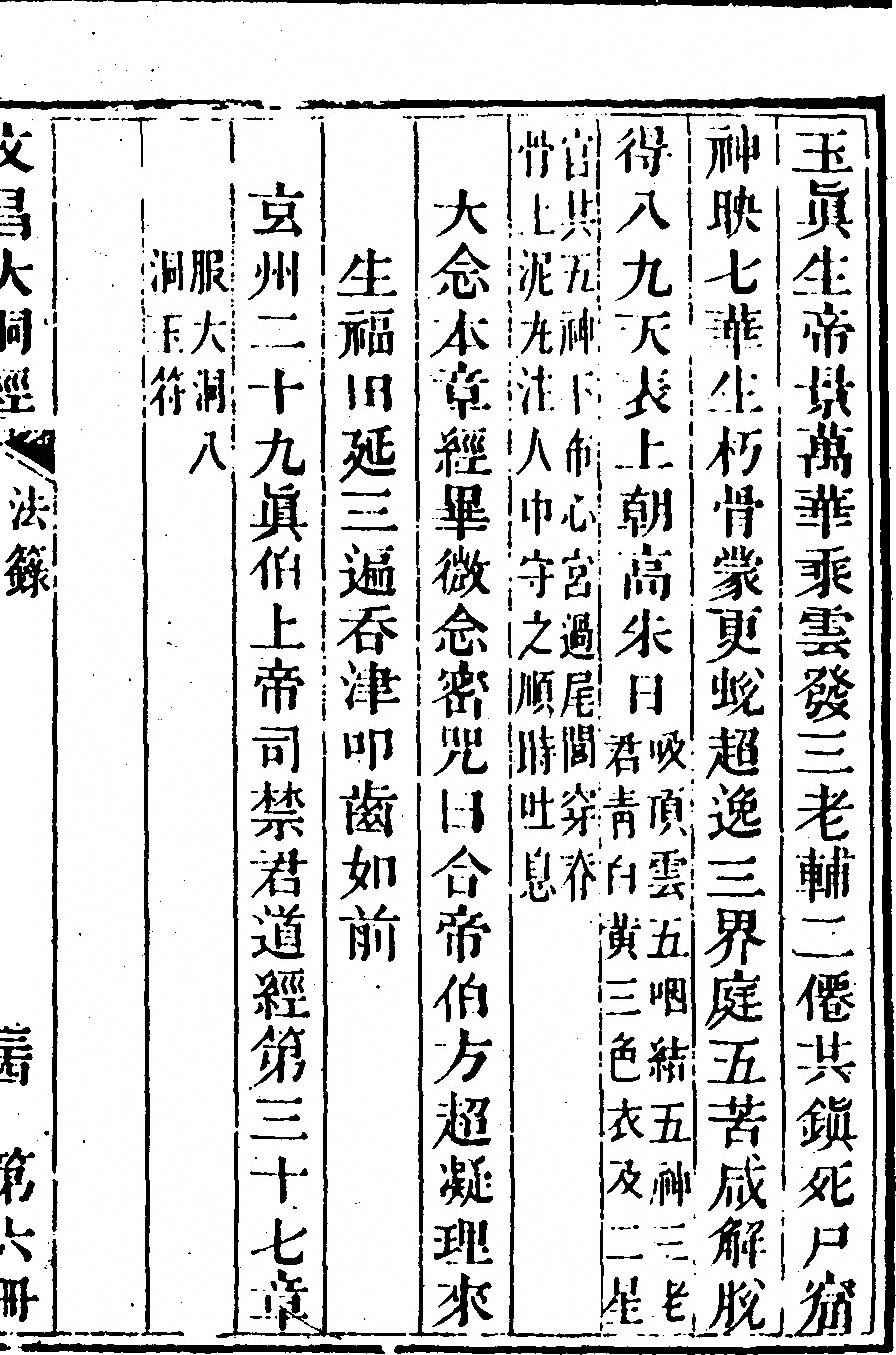 玉眞生帝景萬華乘雲發三老輔二僊共鎭死尸窮
神映七華生朽骨蒙更蛻超逸三界庭五苦咸解脫
得八九天表上朝高朱日
吸頂雲五咽結五神三老
君青白黃三色衣及二星
官共五神下布心宮過尾閭穿脊
骨上泥丸注人中守之順時吐息
大念本章經畢微念密咒曰合帝伯方超凝理來
生福田延三遍吞津叩齒如前
玄州二十九眞伯上帝司禁君道經第三十七章
服大洞八
洞玉符
文昌大洞經
法籙
第六冊